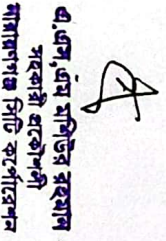 এ,এস,এম মশিউর রহমান
সহকারী প্রকৌশলী
নারায়ণগঞ্জ সিটি কর্পোরেশন